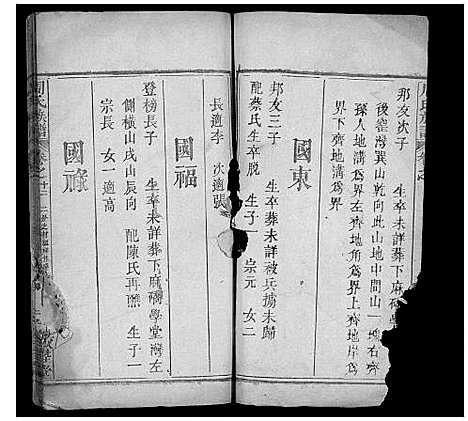 邦友次子　生卒未詳葬下麻學
後窰灣巽山乾向此山地中間山一塊右齊
孫人地溝爲界左齊地角爲界上齊地岸爲
界下齊地溝爲界
國東
邦友三子　生卒葬未詳被兵擄未歸
配蔡氏生卒脱　生子一　宗元　女二
長適李　次適張
國福
登榜長子　生卒未詳葬下麻學堂灣左
側橫山戌山辰向　配陳氏再醮　生子一
宗長　女一適高
國祿
周氏族譜